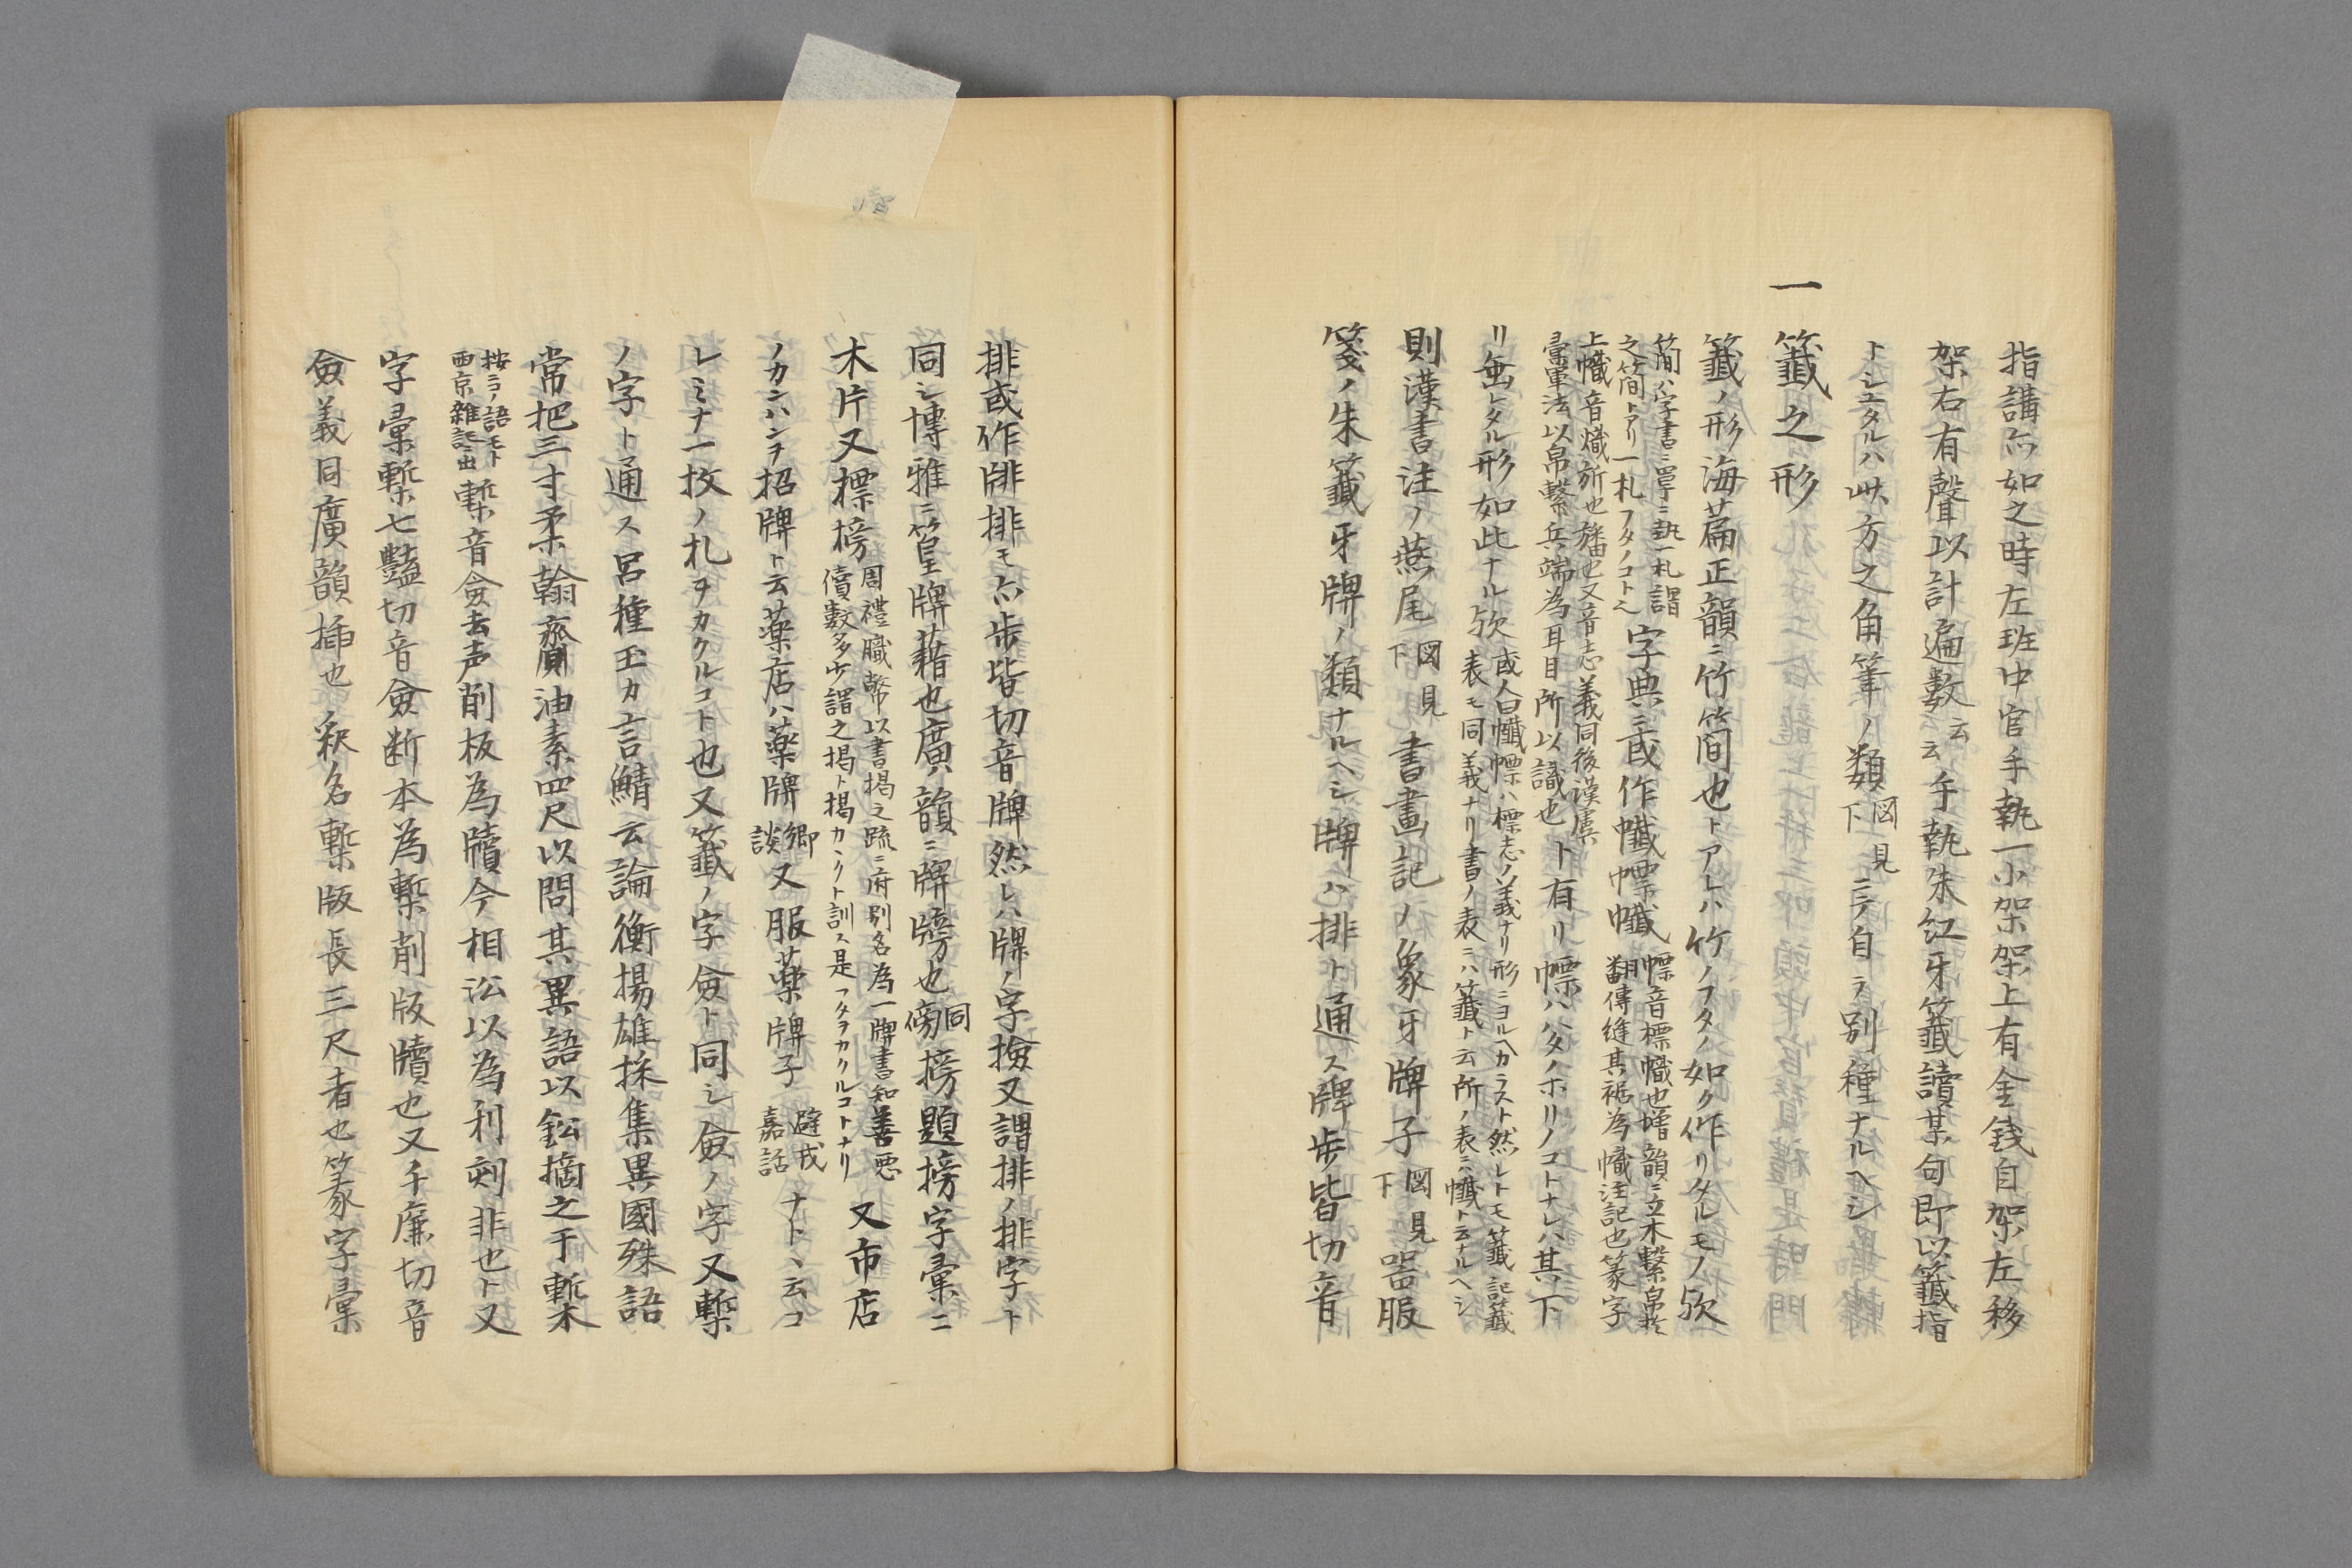 指講亦如之時左班中官手執一小架架上有金銭自架左移
架右有聲以計遍數云云手執朱紅牙籤讀某句即以籤指
トシユタルハ此方之角筆ノ類図見下ニテ自ラ別種ナルヘシ
一 籤之形
籤ノ形海篇正韻ニ竹簡也トアレハ竹ノフタノ如ク作リタルモノ欤
簡ハ字書ニ單ニ執一札謂之簡トアリ一札フタノコト之字典ニ或作幟幖幟幖音標幟也増韻ニ立木繋帛於翻傳縫其裾為幟注記也篆字
上幟音熾旂也旛也又音志義同後漢虞彙軍法以帛繋兵端為耳目所以識也ト有リ幖ハハタノホリノコトナレハ其下
リ垂レタル形如此ナル欤或人曰幟幖ハ標志ノ義ナリ形ニヨルヘカラスト然レトモ籤記籤表モ同義ナリ書ノ表ニハ籤ト云所ノ表ニハ幟ト云ナルヘシ
則漢書注ノ燕尾図見下書畫記ノ象牙牌子図見下器服
箋ノ朱籤牙牌ノ類ナルヘシ牌ハ排ト通ス牌歩皆切音
排或作𤗏排モ亦歩皆切音牌然レハ牌ノ字撿又謂排ノ排字ト
同シ博雅ニ篁牌藉也廣韻ニ牌牓也牓同榜題榜字彙ニ
木片又標榜周禮職幣以書揭之疏ニ府別各為一牌書知善悪價數多少謂之揭ト揭カヽクト訓ス是フタヲカクルコトナリ又市店
ノカンハンヲ招牌ト云薬店ハ薬牌郷談又服薬牌子避戎嘉話ナトヽ云コ
レミナ一枚ノ札ヲカクルコト也又籤ノ字僉ト同シ僉ノ字又槧
ノ字ト通ス呂種玉カ言鯖云論衡揚雄採集異國殊語
常把三寸柔翰齎油素四尺以問其異語以鉛摘之于槧
按ニコノ語モト西京雜記ニ出槧音僉去声削板為牘今相訟以為利剡非也ト又
字彙槧七豔切音僉断本為槧削版牘也又千廉切音
僉義同廣韻插也釈名槧版長三尺者也篆字彙